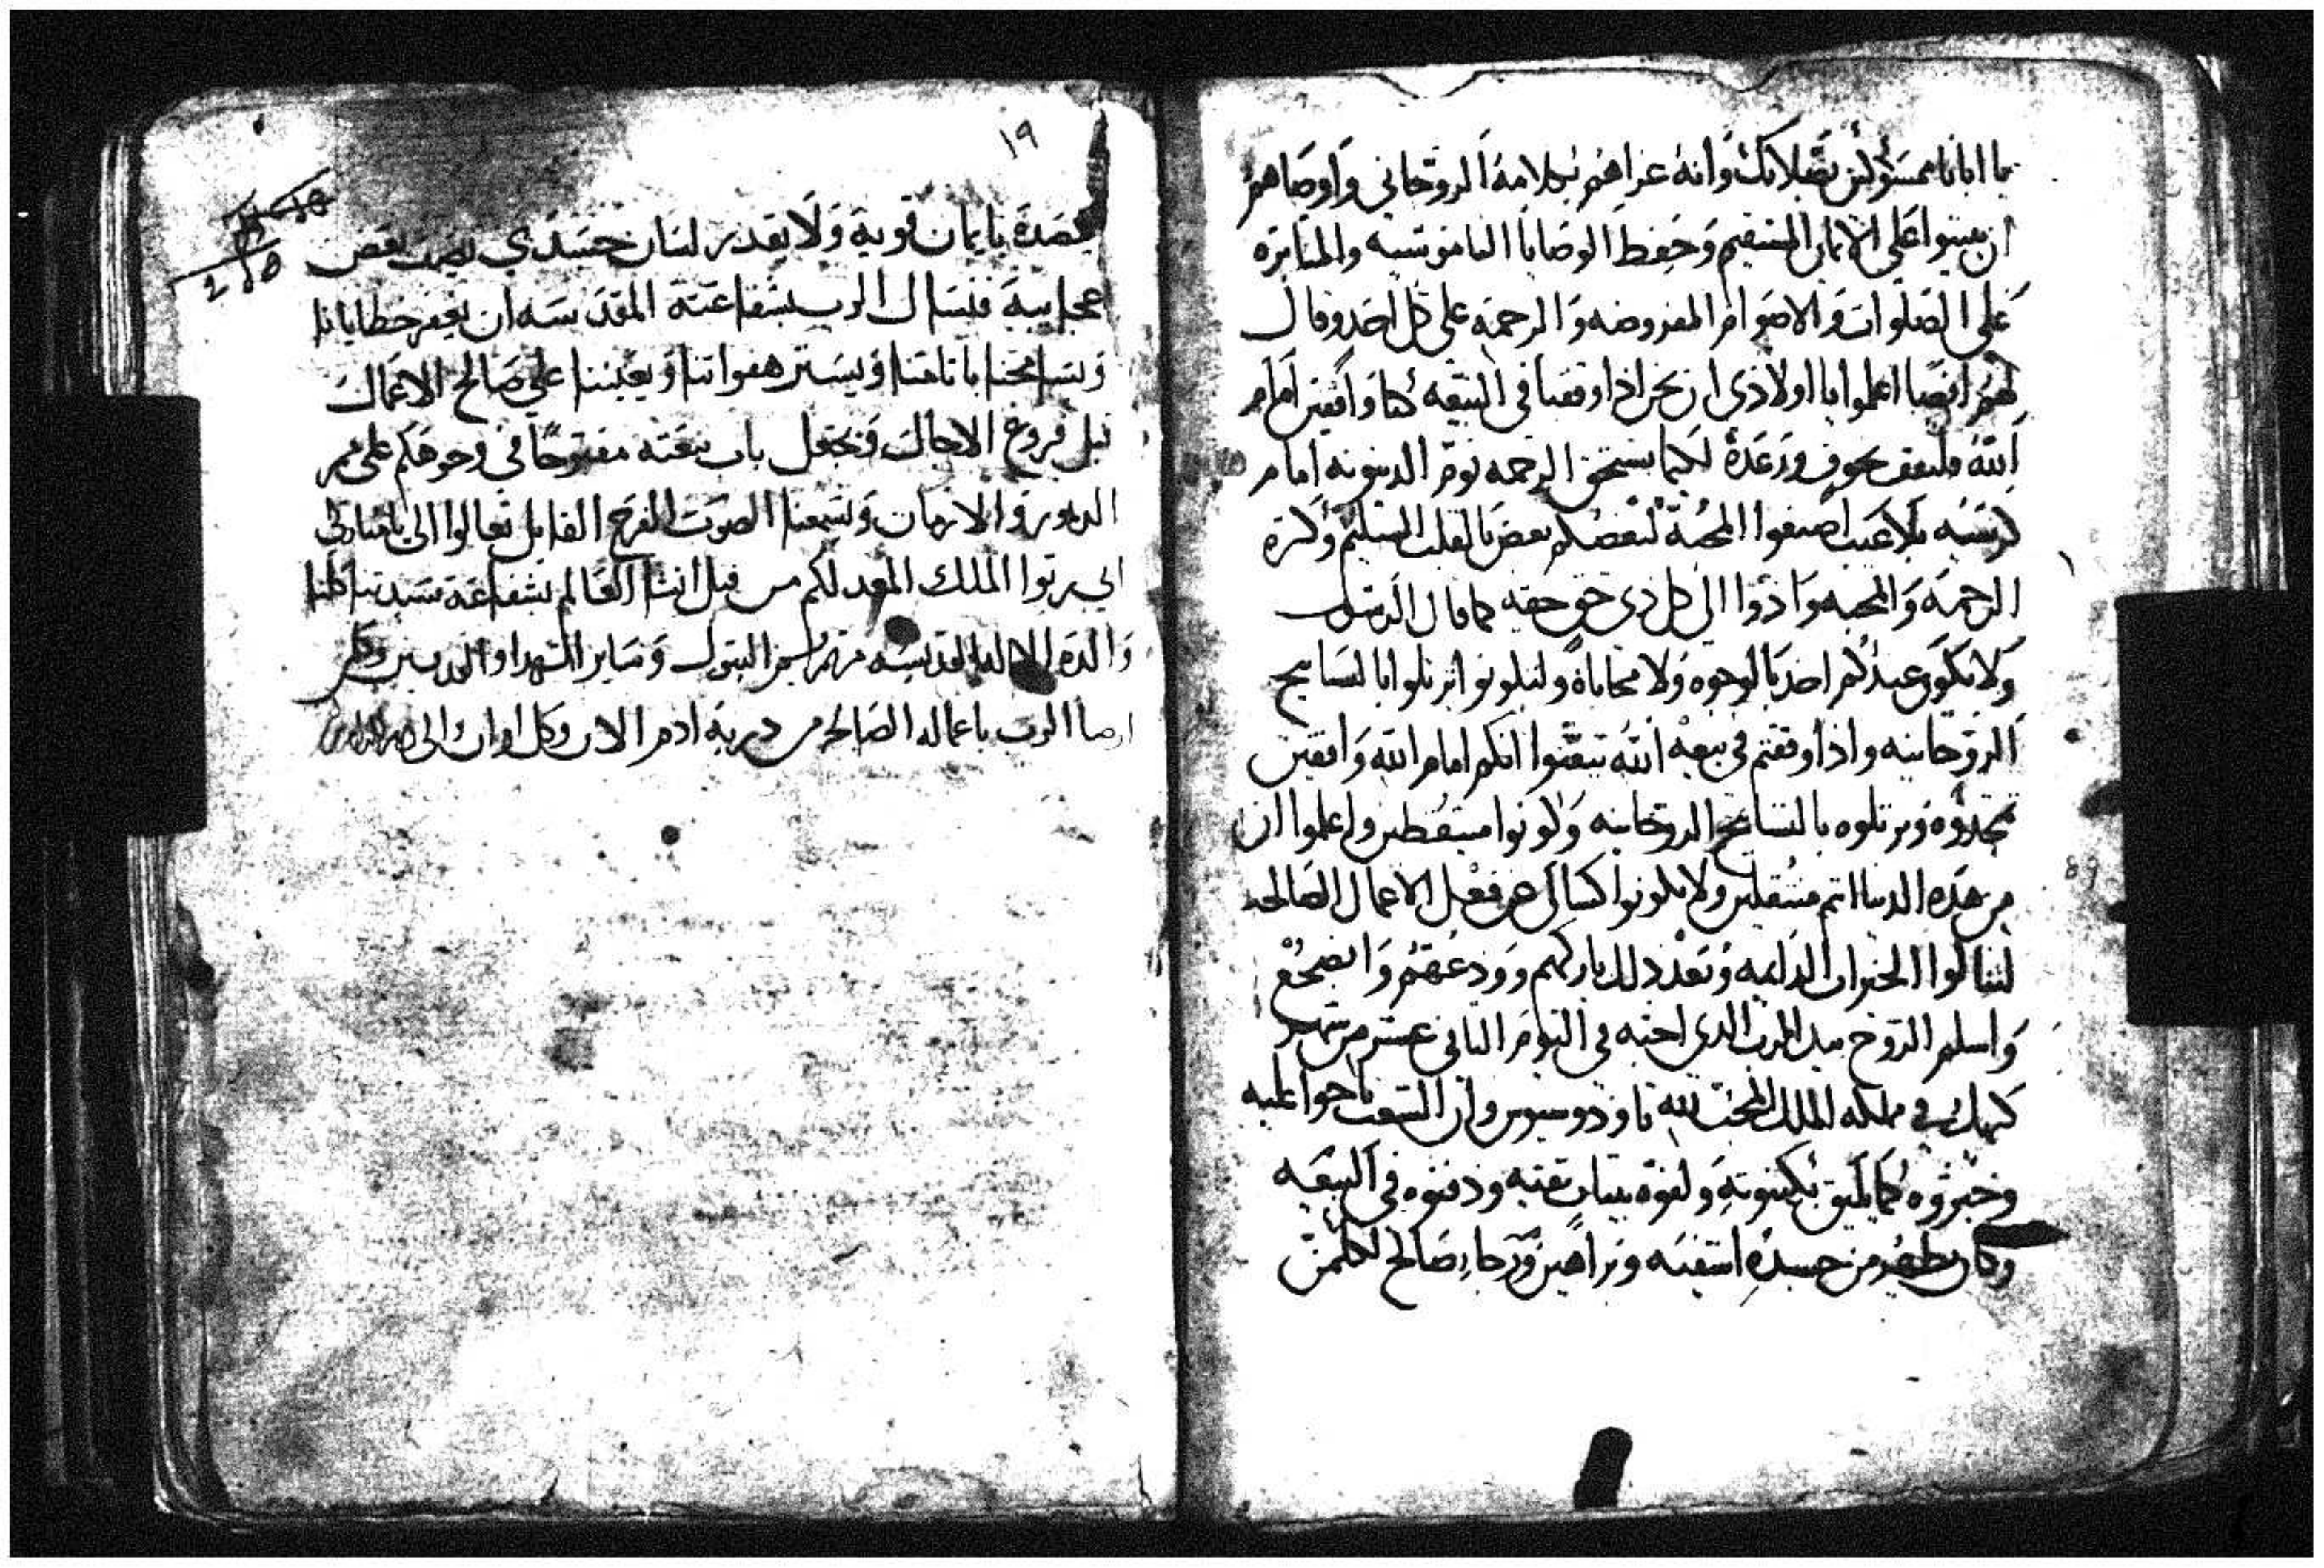 يا ابانا متمسكين بصلاتك وانه عزاهم بكلامه الروحاني واوصاهم
ان يثبتوا علي الامان المستقيم وحفظ الوصايا الناموسيه والمثابره
علي الصلوات والاصوام المفروضه والرحمه علي كل احد وقال
لهم ايضا اعلموا يا اولادي ان نحن اذا وقفنا في البيعه كنا واقفين امام
الله فلنقف بخوف ورعدة لكيما نستحق الرحمه يوم الدينونه امام
كرسيه بلا عيب اصنعوا المحبة لبعضكم بعض بالقلب السليم وكثرة
الرحمه والمحبه وادوا الي كل ذي حق حقه كما قال الرسول
ولا يكون عندكم اخد بالوجوه ولا محاباة ولتكونوا ترتلوا بالتسابيح
الروحانيه واذا وقفتم في بيعة الله تيقنوا انكم امام الله واقفين
تمجدوه وترتلوه بالتسابيح الروحانيه وكونوا مستيقظين واعلموا ان
من هذه الدنيا انتم منتقلين ولا تكونوا كسالي عن فعل الاعمال الصالحه
لتنالوا الخيرات الدايمه وبعد ذلك باركهم وودعهم وانضجع
واسلم الروح بيد الرب الذي احبه في اليوم الثاني عشر من شهر
كيهك في مملكه الملك المحب لله تاودوسيوس وان الشعب ناحوا عليه
وجنزوه كما يليق بكهنوته ولفوه بثياب نقيه ودفنوه في البيعه
وكان يظهر من جسده اشفيه وبراهين ورجا صالح لكلمن
١٩
يقصده بايمان قوية ولا يقدر لسان جسدي يصف بعض
عجايبة فنسال الرب بشفاعته المقدسه ان يغفر خطايانا
ويسامحنا باثامنا ويستر هفواتنا ويعيننا علي صالح الاعمال
قبل فروغ الاجال ويجعل باب بيعته مفتوحا في وجوهكم علي ممر
الدهور والازمان ويسمعنا الصوت الفرح القايل تعالوا الي يا مباركي
ابي رثوا الملك المعد لكم من قبل انشا العالم بشفاعة سيدتنا كلنا
والدة الاله القديسه مرتمريم البتول وساير الشهدا والقديسين وكلمن
ارضا الرب باعماله الصالحه من ذرية ادم الان وكل اوان والي دهر الداهرين